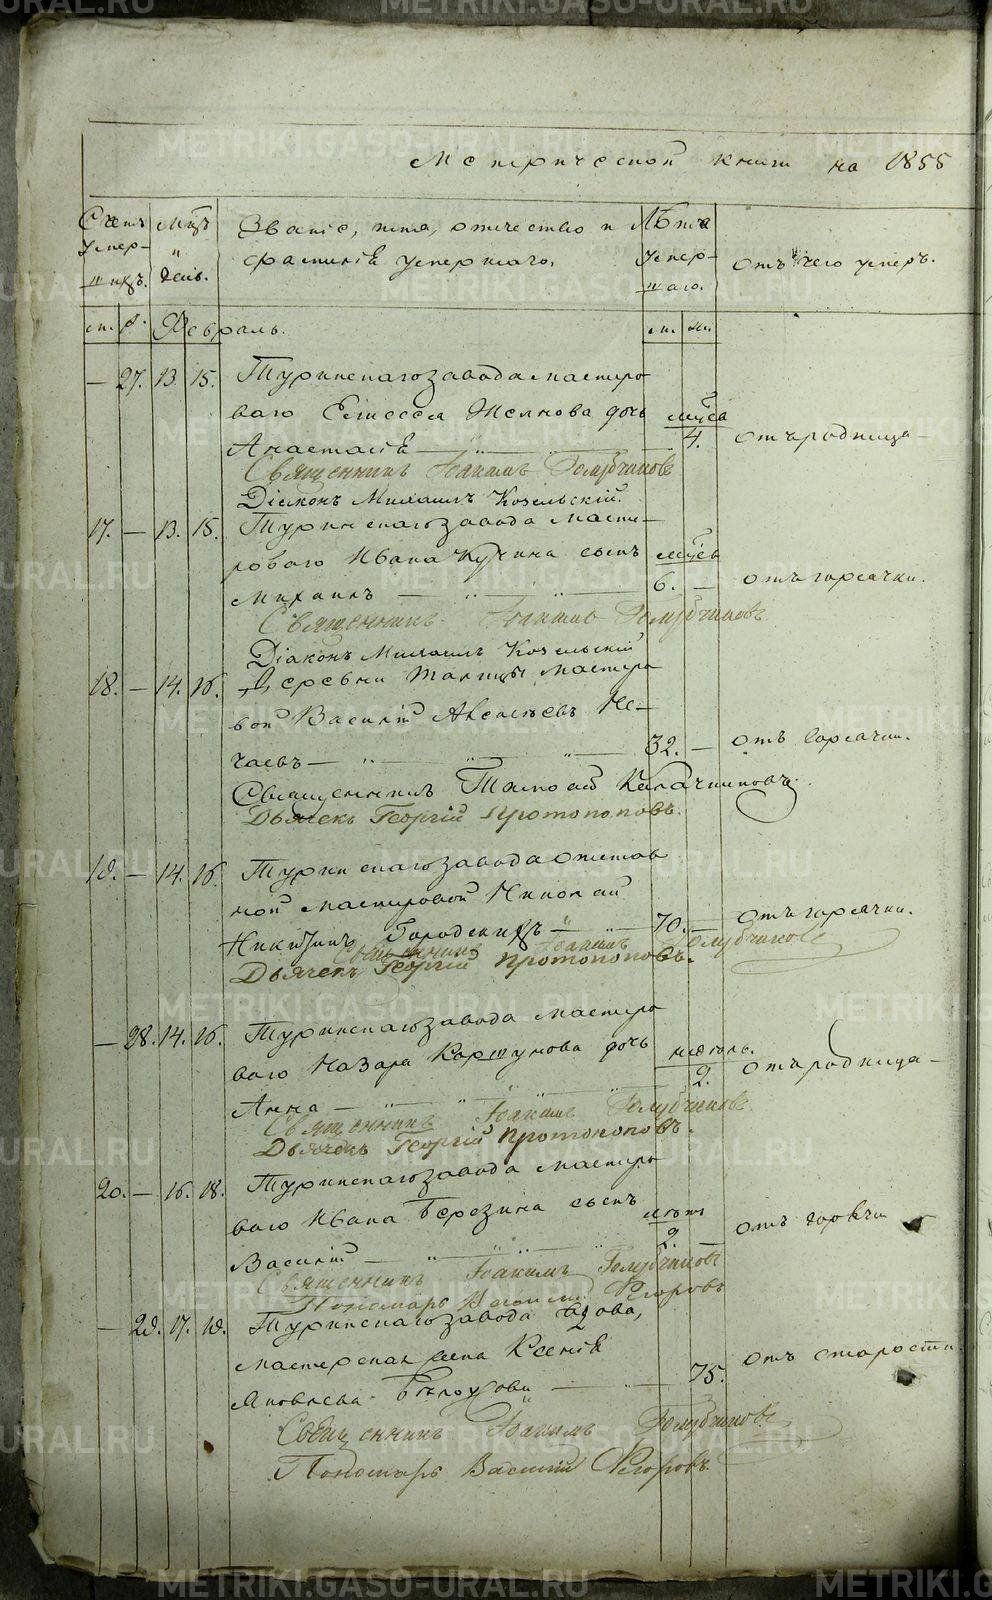 METRIKI.GASO-URAL.RU
Метрической книги на 1855
Счетъ умер-шихъ.
Мцъ и день.
Званіе, имя, отчество и фамилія умершаго.
Лѣта умер-шаго.
Отъ чего умеръ.
м. ж. Февраль. м. ж.
— 27. 13. 15. Туринскаго завода мастеро
ваго Елисея Желнова дочь мѣсяца
Анастасія — 4. отъ родимца —
Священникъ Іоакимъ Голубчиковъ
Діаконъ Михаилъ Козельскій.
17. — 13. 15. Туринскаго завода масте—
роваго Ивана Кучина сынъ мѣсяцъ
Михаилъ — 6. — отъ горячки.
Священникъ Іоакимъ Голубчиковъ
Діаконъ Михаилъ Козельскій
18. — 14. 16. Деревни мастеро
вой Василій Алексѣевъ Не—
чаевъ — 32. — отъ горячки.
Священникъ Калачниковъ.
Дьячекъ Георгій Протопоповъ.
19. — 14. 16. Туринскаго завода отстав
ной мастеровой Николай
Никитинъ — 70. — отъ горячки.
Священникъ Іоакимъ Голубчиковъ
Дьячекъ Георгій Протопоповъ.
— 28. 14. 16. Туринскаго завода мастеро
ваго Назара Коршунова дочь недѣль.
Анна — 2. отъ родимца —
Священникъ Іоакимъ Голубчиковъ
Дьячекъ Георгій Протопоповъ.
20. — 16. 18. Туринскаго завода мастеро
ваго Ивана Березина сынъ лѣтъ
Василій — 2. отъ горячки
Священникъ Іоакимъ Голубчиковъ
Пономарь Василій Егоровъ
— 29. 17. 19. Туринскаго завода вдова,
мастерская жена Ксенія
Яковлева Бѣлоусова — 75. отъ старости.
Священникъ Іоакимъ Голубчиковъ
Пономарь Василій Егоровъ.